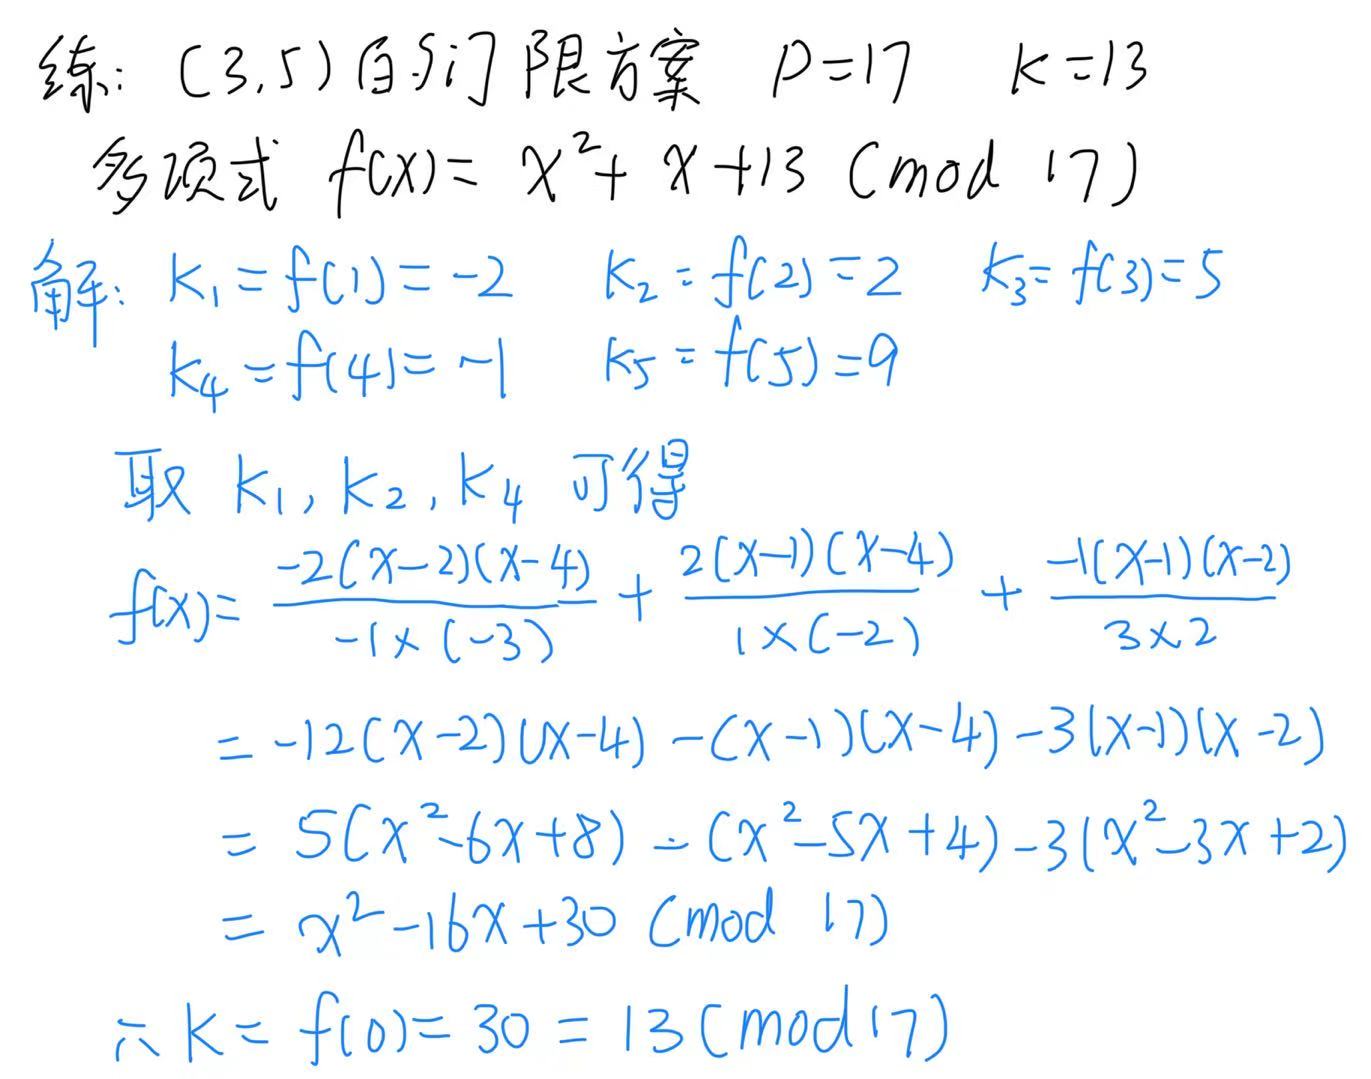 练: (3,5)的门限方案 P=17 K=13
多项式 f(x)= x²+ x+13 (mod 17)
解: K₁=f(1)=-2 K₂=f(2)=2 K₃=f(3)=5
K₄=f(4)=-1 K₅=f(5)=9
取 K₁, K₂, K₄ 可得
f(x)= -2(x-2)(x-4)/-1×(-3) + 2(x-1)(x-4)/1×(-2) + -1(x-1)(x-2)/3×2
= -12(x-2)(x-4) -(x-1)(x-4)-3(x-1)(x-2)
= 5(x²-6x+8) -(x²-5x+4)-3(x²-3x+2)
= x²-16x+30 (mod 17)
∴ K= f(0)= 30 = 13(mod17)